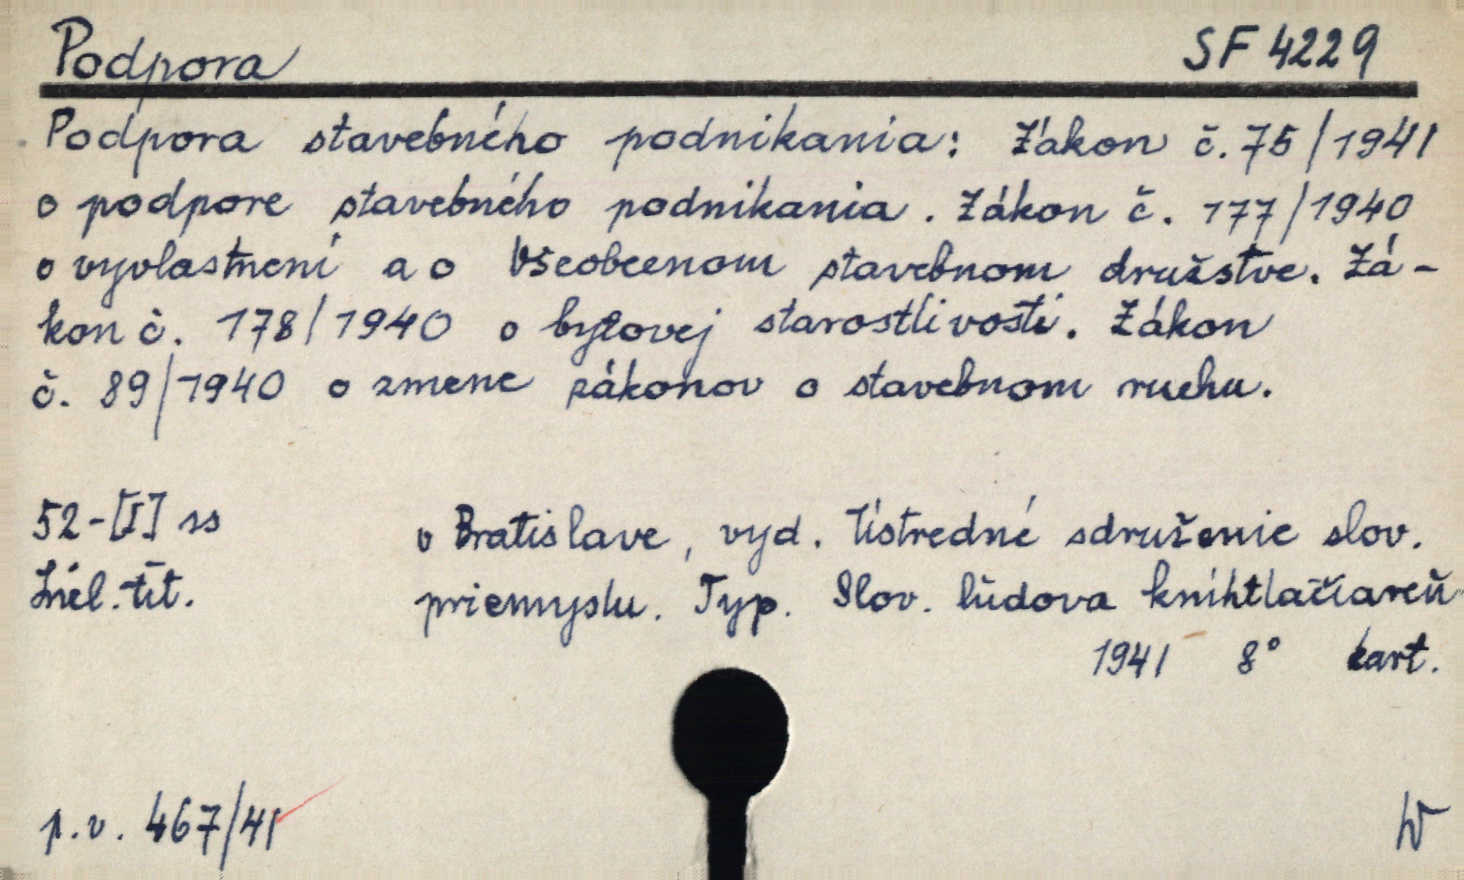 Podpora SF 4229
Podpora stavebného podnikania: Zákon č. 75/1941
o podpore stavebného podnikania. Zákon č. 177/1940
o vyvlastnení a o Všeobecnom stavebnom družstve. Zá-
kon č. 178/1940 o bytovej starostlivosti. Zákon
č. 89/1940 o zmene zákonov o stavebnom ruchu.
52-[I] ss v Bratislave, vyd. Ústredné sdruženie slov.
tit. priemyslu. Typ. Slov. ľudova kníhtlačiareň
1941 8° kart.
p.v. 467/41